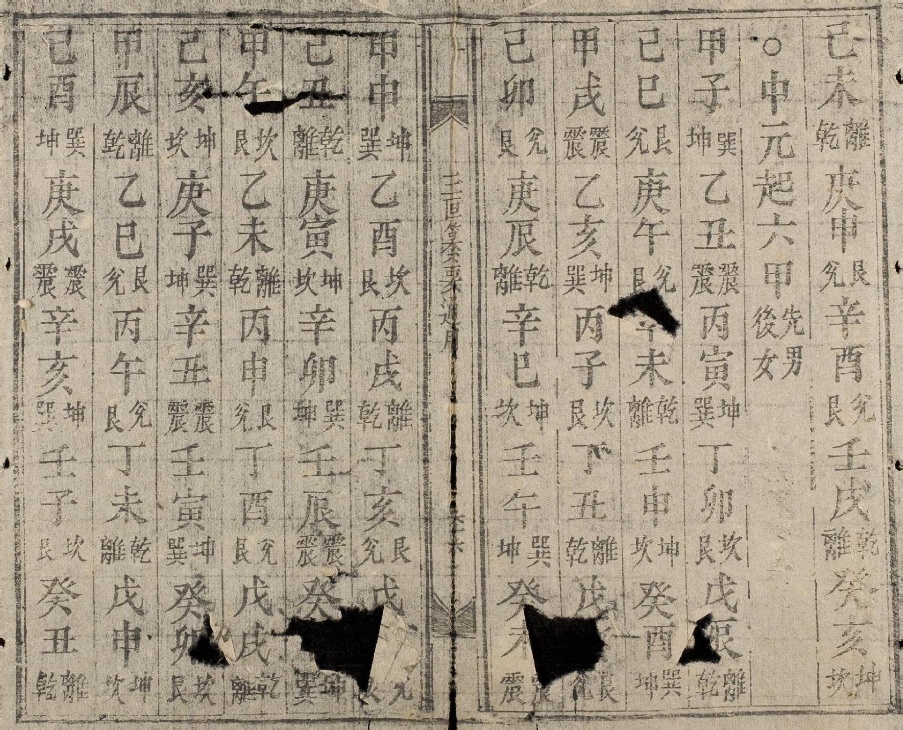 己未離乾庚申艮兊辛酉兊艮壬戌乾離癸亥坤坎
○中元起六甲先男後女
甲子巽坤乙丑震震丙寅坤巽丁卯坎艮戊辰離乾
己巳艮兊庚午兊艮辛未乾離壬申坤坎癸酉巽坤
甲戌震震乙亥坤巽丙子坎艮丁丑離乾戊艮兊
己卯兊艮庚辰乾離辛巳坤坎壬午巽坤癸未震震
三世通用
甲申坤巽乙酉坎艮丙戌離乾丁亥艮兊戊兊艮
己丑乾離庚寅坤坎辛卯巽坤壬辰震震癸坤巽
甲午坎艮乙未離乾丙申艮兊丁酉兊艮戊戌乾離
己亥坤坎庚子巽坤辛丑震震壬寅坤巽癸卯坎艮
甲辰離乾乙巳艮兊丙午兊艮丁未乾離戊申坤坎
己酉巽坤庚戌震震辛亥坤巽壬子坎艮癸丑離乾